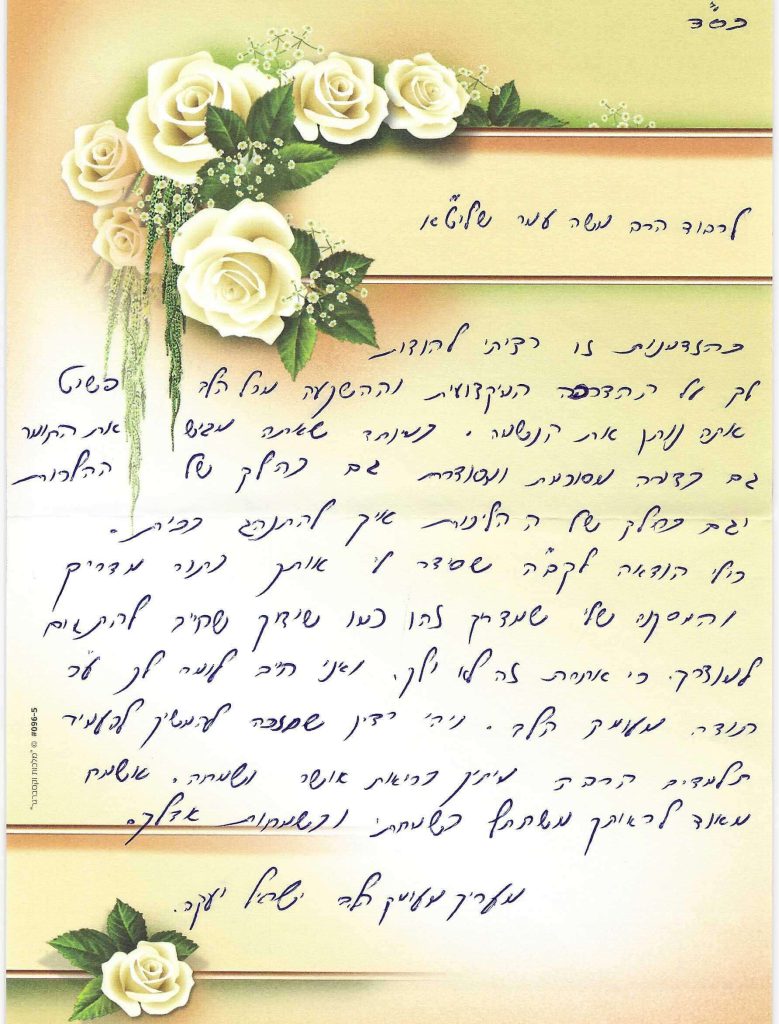 בס"ד
לכבוד הרב משה עמר שליט"א
בהזדמנות זו רציתי להודות
לך על ההדרכה המיקצועית וההשקעה מכל הלב פשוט
אתה נותן את הנשמה. במיוחד שאתה מגיש את החומר
גם בצורה מסוכמת ומסודרת גם בחלק של ההלכות
וגם בחלק של ההליכות איך להתנהג בבית.
כולי הודאה לקב"ה שסידר לי אותך בתור מדריך
והמסקנה שלי שמדריך זהו כמו שידוך שחייב להתאים
למודרך. כי אחרת זה לא ילך. ואני חייב לומר לך עד
תודה מעומק הלב. ויהי רצון שתזכה להמשיך להעמיד
תלמידים הרבה מיתוך בריאות אושר ושמחה. אשמח
מאוד לראותך משתתף בשמחתי ובשמחות אצלך.
מעריך מעומק הלב ישראל יעקב.
#090-5